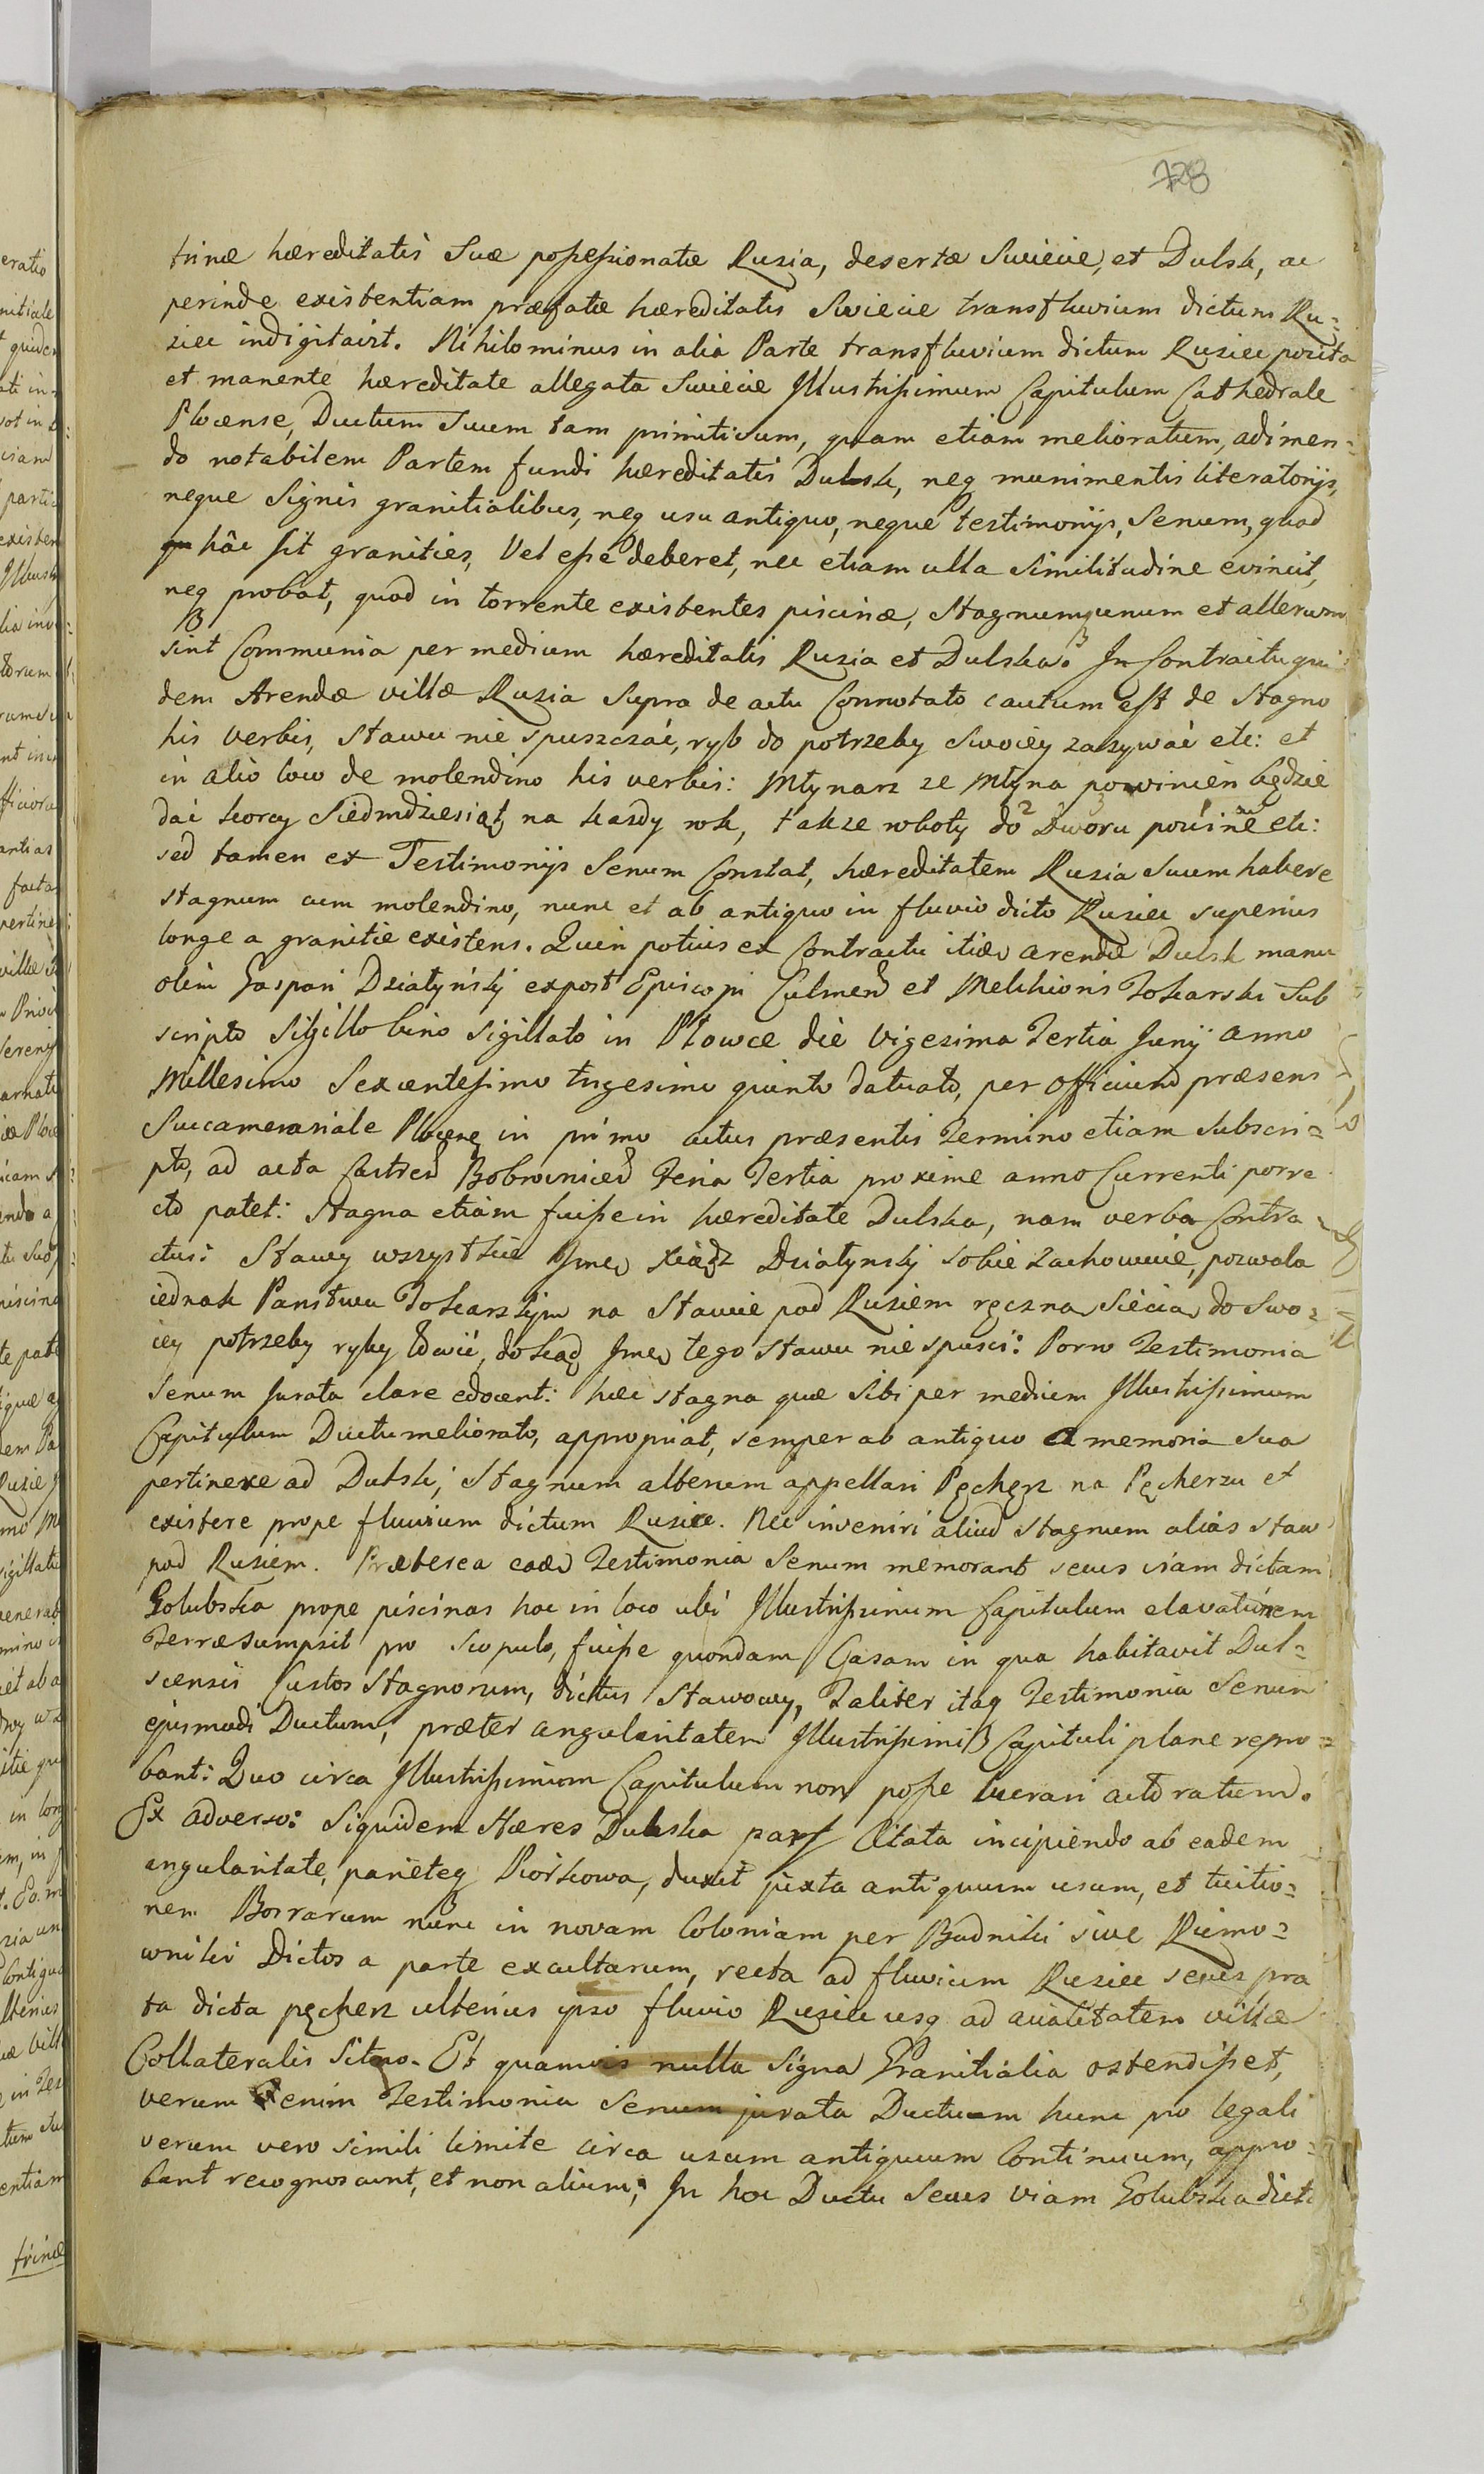 728
trinæ hæreditatis Suæ possessionatæ Rusia, desertæ Swiecie, et Dulsk, ac
perinde existentiam præfatæ hæreditatis Swiecie transfluvium dictum Ru=
ziec indigitavit. Nihilominus in alia Parte transfluvium dictum Ruziec posita
et manente hæreditate allegata Swiecie Illustrissimum Capitulum Cathedrale
Plocense, Ductum Suum tam primitivum, quam etiam melioratum, adimen=
do notabilem Partem fundi hæreditatis Dulsk, neq munimentis literatorijs,
neque Signis granitialibus, neq usu antiquo, neque testimonijs, Senum, quod
hâc sit granities, Vel esse deberet, nec etiam ulla similitudine evincit,
neq probat, quod in torrente existentes piscinæ, Stagnum unum et alterum
sint Communia per medium hæreditatis Ruzia et Dulska. In Contractu qui
dem Arendæ villæ Ruzia Supra de actu Connotato cautum est de Stagno
his verbis, Stawu nie spuszczać, ryb do potrzeby Swoiey zazywać etc: et
in alio loco de molendino his verbis: Młynarz ze Młyna powinien będzie
dać korcy Siedmdziesiąt na kazdy rok, takze roboty do Dworu etc:
sed tamen ex Testimonijs Senum Constat, hæreditatem Ruzia Suum habere
stagnum cum molendino, nunc et ab antiquo in fluvio dicto Ruziec superius
longe a granitie existens. Quin potius ex Contractu arendæ Dulsk manu
olim Gaspari Działyńskÿ expost Episcopi Culmen et Melchioris Tokarski Sub
scripto Sigillo bino sigillato in Płowce die Vigesima Tertia Junÿ anno
Millesimo Sexcentesimo trigesimo quinto datuato, per Officium præsens
Succamerariale Plocens in primo actus præsentis Termino etiam Subscri=
pto, ad acta Castren Bobrownicen Feria Tertia proxime anno Currenti porre
cto patet: Stagna etiam fuisse in hæreditate Dulska, nam verba Contra=
ctus: Stawy wszystkie Jmc Xiądz Działynskÿ sobie zachowuie, pozwala
iednak Panstwu Tokarskym na Stawie pod Ruziem ręczna Siecia do Swo=
iey potrzeby ryby łowić, dokąd Jmc tego Stawu nie spuści: Porro Testimonia
Senum Jurata clare edocent: hæc stagna quæ Sibi per medium Illustrissimum
Capitulum Ductu meliorato, appropriat, semper ab antiquo a memoria Sua
pertinere ad Dulsk; Stagnum alterum appellari Pęcherz na Pęcherzu et
existere prope fluvium dictum Ruziec. Nec inveniri aliud Stagnum alias staw
pod Ruziem. Præterea Testimonia Senum memorant secus viam dictam
Golubska prope piscinas hoc in loco ubi Illustrissimum Capitulum elavationem
Terræ Sumpsit pro Scopulo, fuisse quondam Casam in qua habitavit Dul=
scensis Custos Stagnorum, dictus Stawowy, Taliter itaq Testimonia Senum
ejusmodi Ductum, præter angularitatem Illustrissimi Capituli plane repro=
bant: Quo circa Illustrissimum Capitulum non posse lucrari actoratum.
Ex adverso: Siquidem Hæres Dulska pars Citata incipiendo ab eadem
angularitate, parieteq Piórkowa, duxit juxta antiquum usum, et tuitio=
nem Borrarum nunc in novam Coloniam per Budniki sive
Dictos a parte excultarum, recta ad fluvium Ruziec secus pra
ta dicta pęcherz ulterius ipso fluvio Ruziec usq ad villæ
Collateralis Sitno. Et quamvis nulla Signa Granitialia ostendisset,
verum enim Testimonia Senum jurata Ductum hunc pro legali
verum vero simili limite circa usum antiquum Continuum, appro=
bant recognoscunt, et non alium; In hoc Ductu Secus Viam Golubska dict